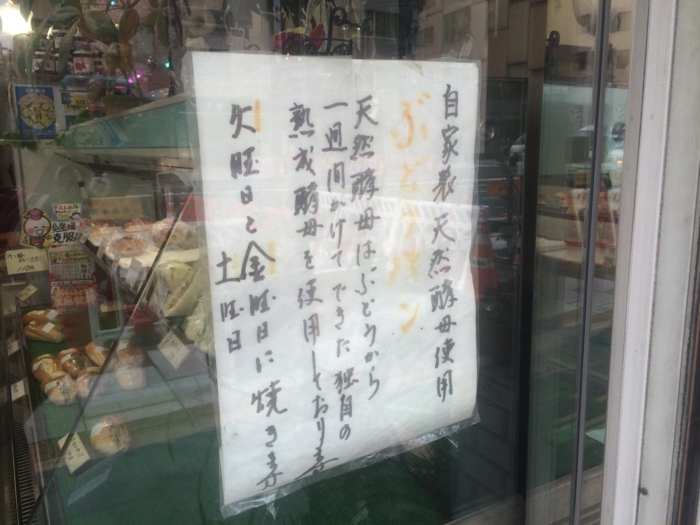 自家製天然酵母使用
ぶどうパン
天然酵母はぶどうから
一週間かけてできた独自の
熟成酵母を使用しております
火曜日と金曜日に焼きます
土曜日